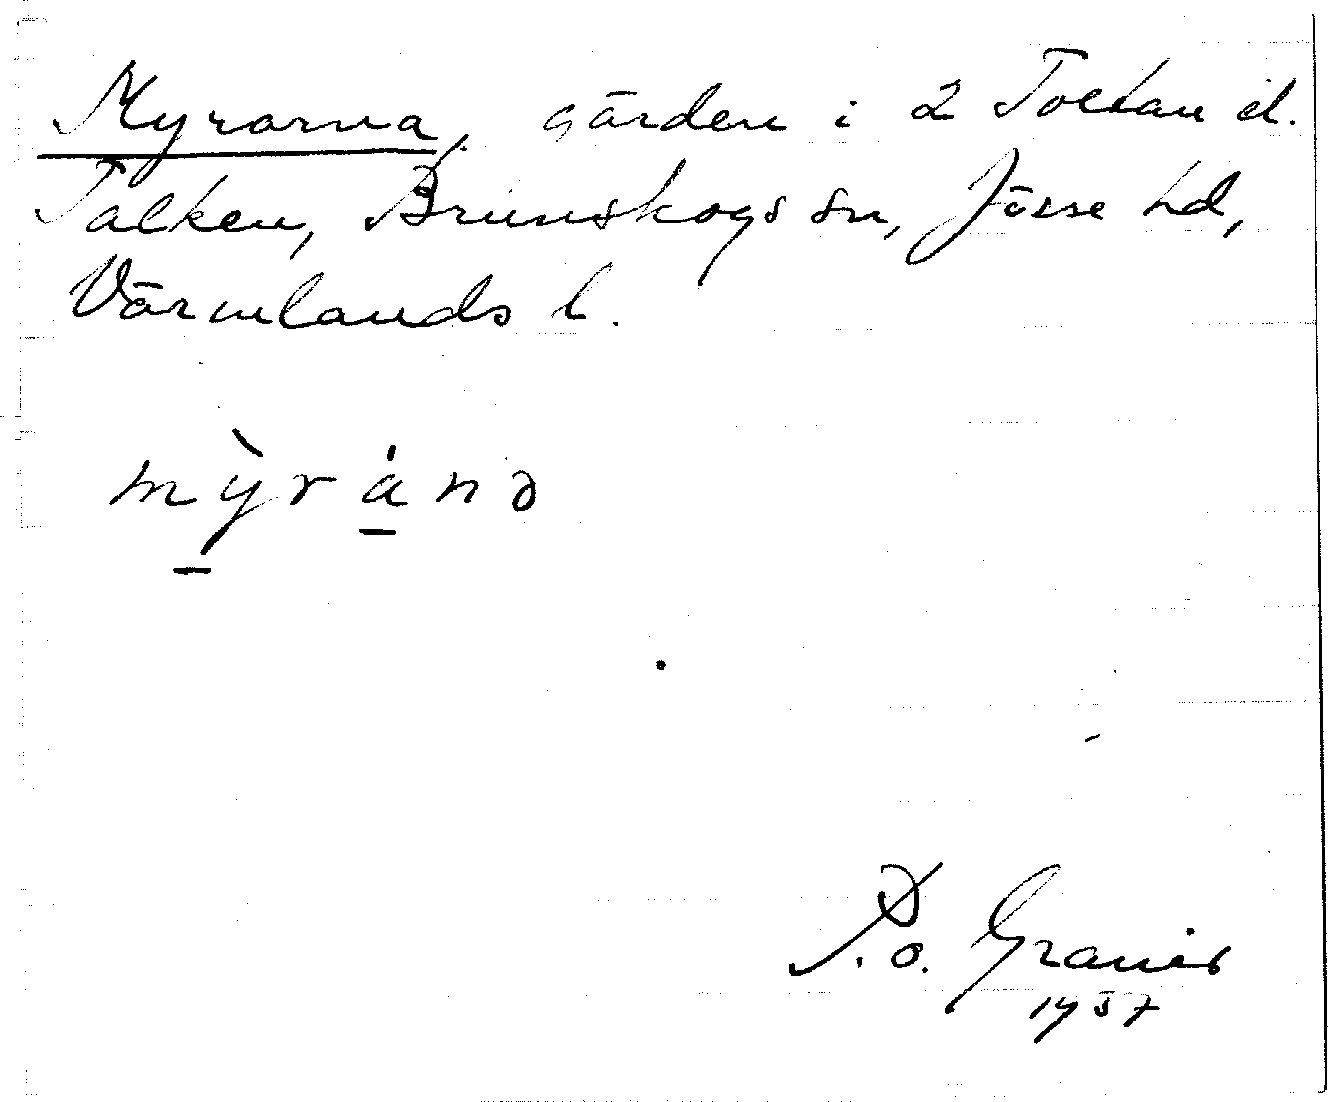 Myrarna, gården i 2 Tolvan el.
Talken, Brunskogs sn, Jösse hd,
Värmlands l.
mỳránə
P. O. Granér
1937